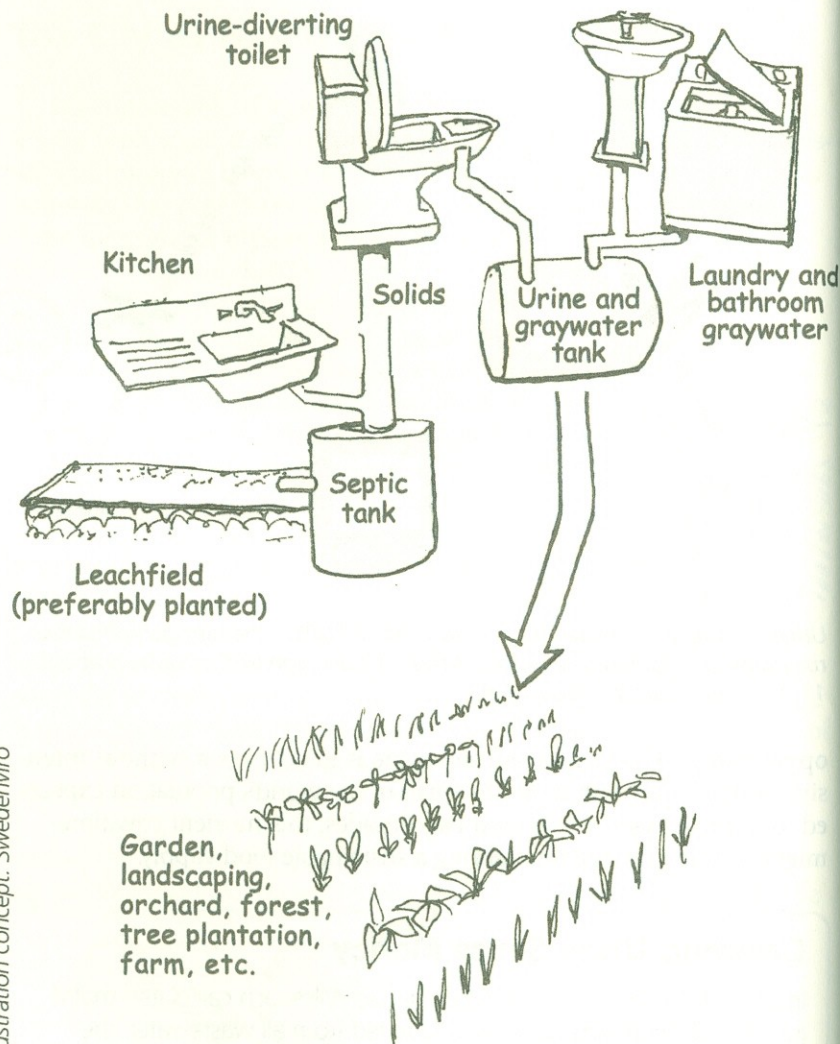 Urine-diverting
toilet
Kitchen
Solids
Urine and
graywater
tank
Laundry and
bathroom
graywater
Septic
tank
Leachfield
(preferably planted)
Garden,
landscaping,
orchard, forest,
tree plantation,
farm, etc.
concept: Swedenviro